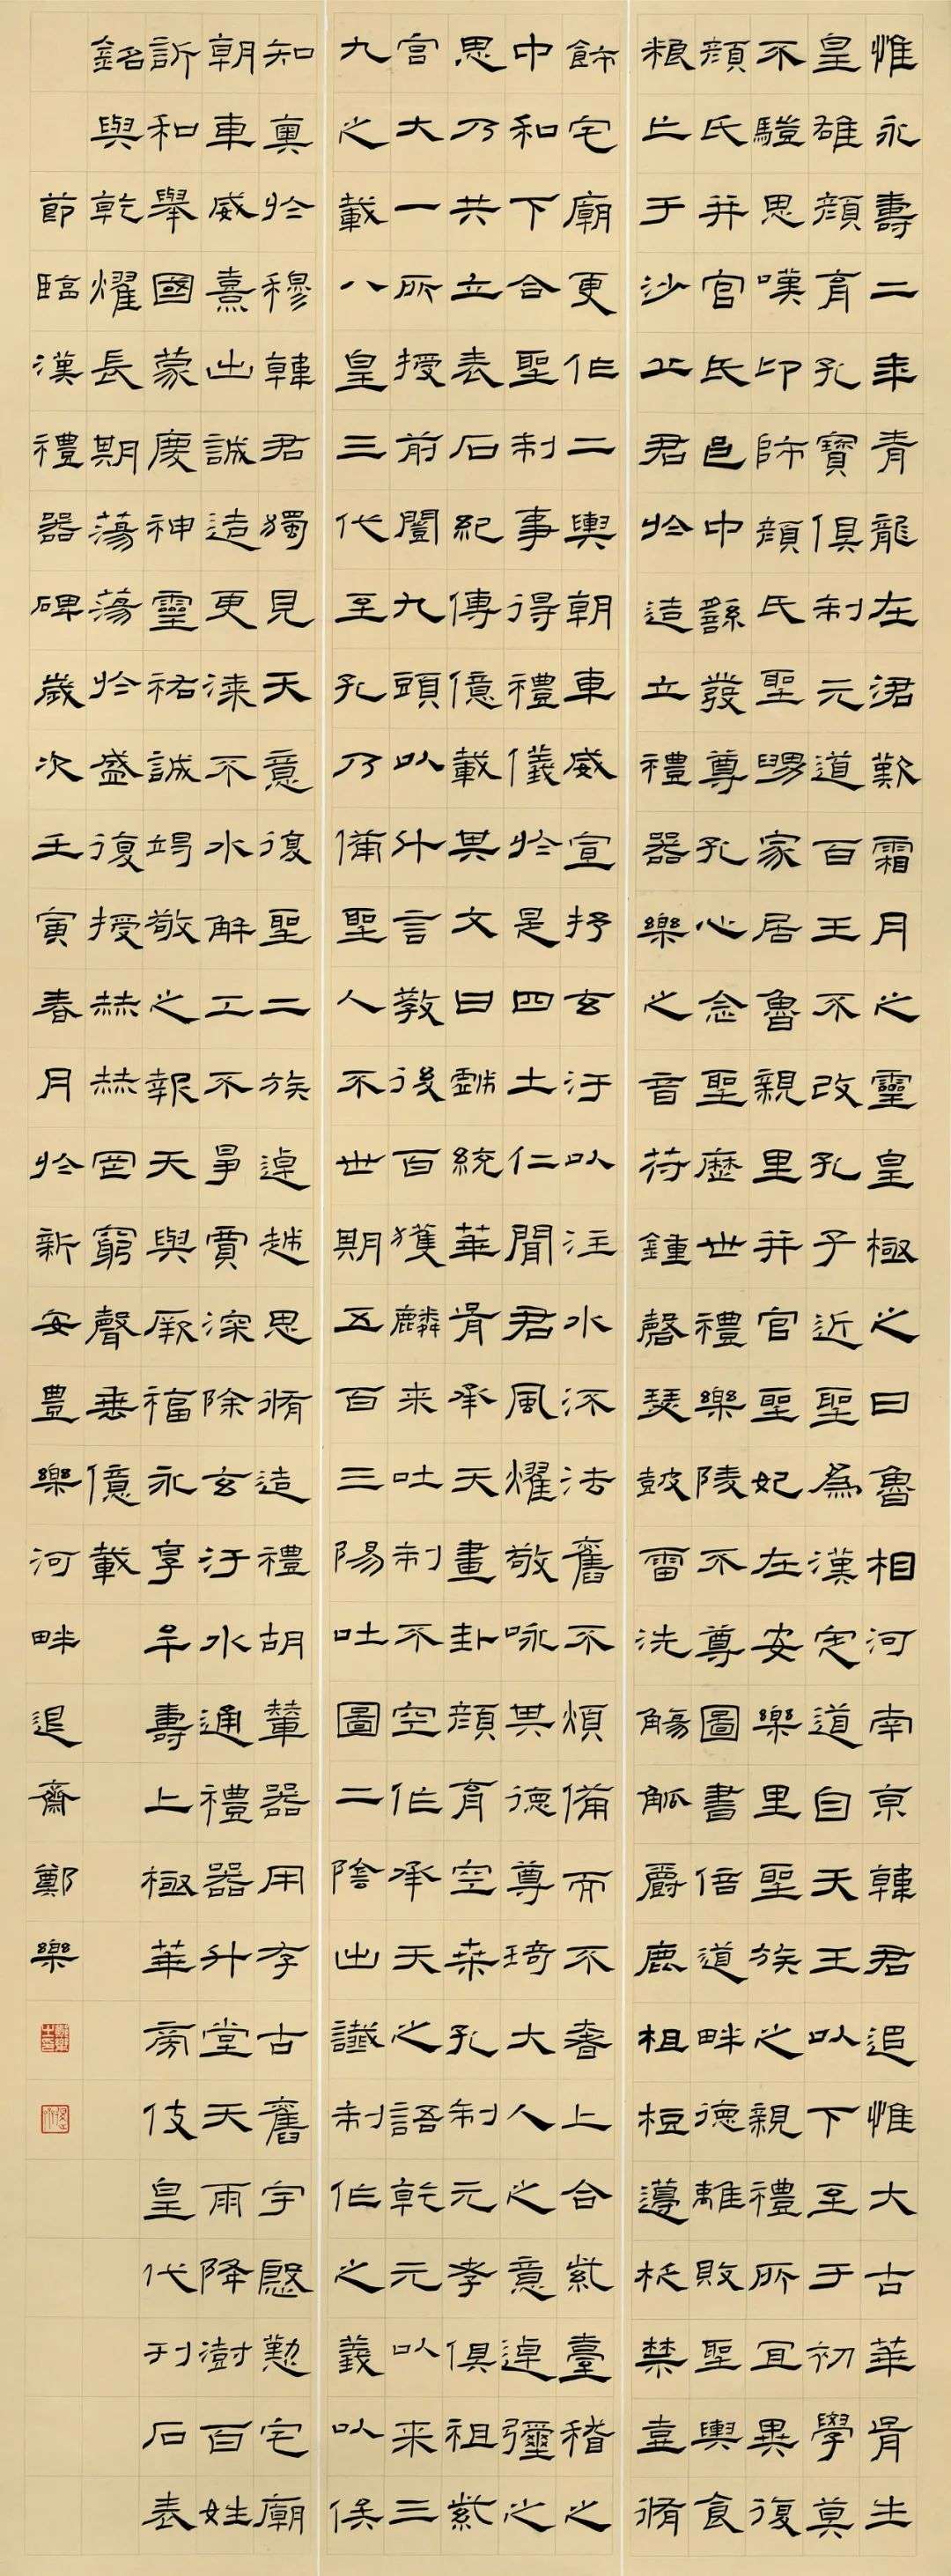 惟永壽二年青龍在涒歎霜月之靈皇極之日魯相河南京韓君追惟大古華胥生
皇雄顏育孔寶俱制元道百王不改孔子近聖為漢定道自天王以下至于初學莫
不驥思嘆卬師顏氏聖舅家居魯親里并官聖妃在安樂里聖族之親禮所宜異復
顏氏并官氏邑中繇發尊孔心念聖歷世禮樂陵不尊圖書倍道畔德離敗聖輿食
糧亡于沙丘君於造立禮器樂之音苻鍾磬瑟鼓雷洗觴觚爵鹿柤梪籩柉禁壺脩
飾宅廟更作二輿朝車威宣抒玄汙以注水沭法舊不煩備而不奢上合紫臺稽之
中和下合聖制事得禮儀於是四土仁聞君風燿敬咏其德尊琦大人之意逴彌之
思乃共立表石紀傳億載其文曰戲統華胥承天畫卦顏育空桑孔制元孝俱祖紫
宮大一所授前闓九頭以什言教後百獲麟来吐制不空作承天之語乾元以来三
九之載八皇三代至孔乃備聖人不世期五百三陽吐圖二陰出讖制作之義以俟
知奧於穆韓君獨見天意復聖二族逴越思脩造禮胡輦器用存古舊宇慇懃宅廟
朝車威熹出誠造更漆不水解工不爭賈深除玄汙水通禮器升堂天雨降澍百姓
訢和舉國蒙慶神靈祐誠竭敬之報天與厥福永享牟壽上極華旁伎皇代刊石表
銘與乾燿長期蕩蕩於盛復授赫赫罔窮聲垂億載
節臨漢禮器碑歲次壬寅春月於新安豐樂河畔退齋鄭樂